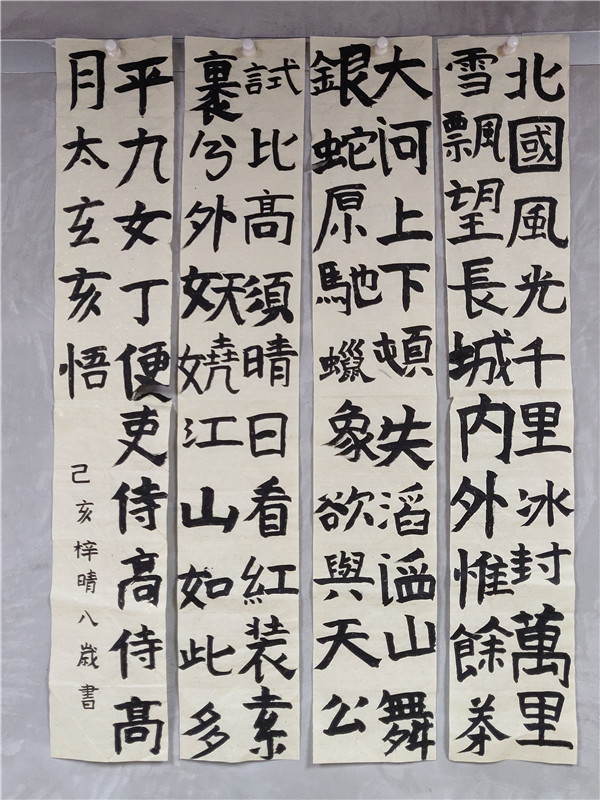 北國風光千里冰封萬里
雪飄望長城内外惟餘莽
大河上下頓失滔滔山舞
銀蛇原馳蠟象欲與天公
試比高須晴日看紅装素
裹兮外妖嬈江山如此多
平九女丁便吏侍高侍高
月太玄亥悟
己亥梓晴八歲書